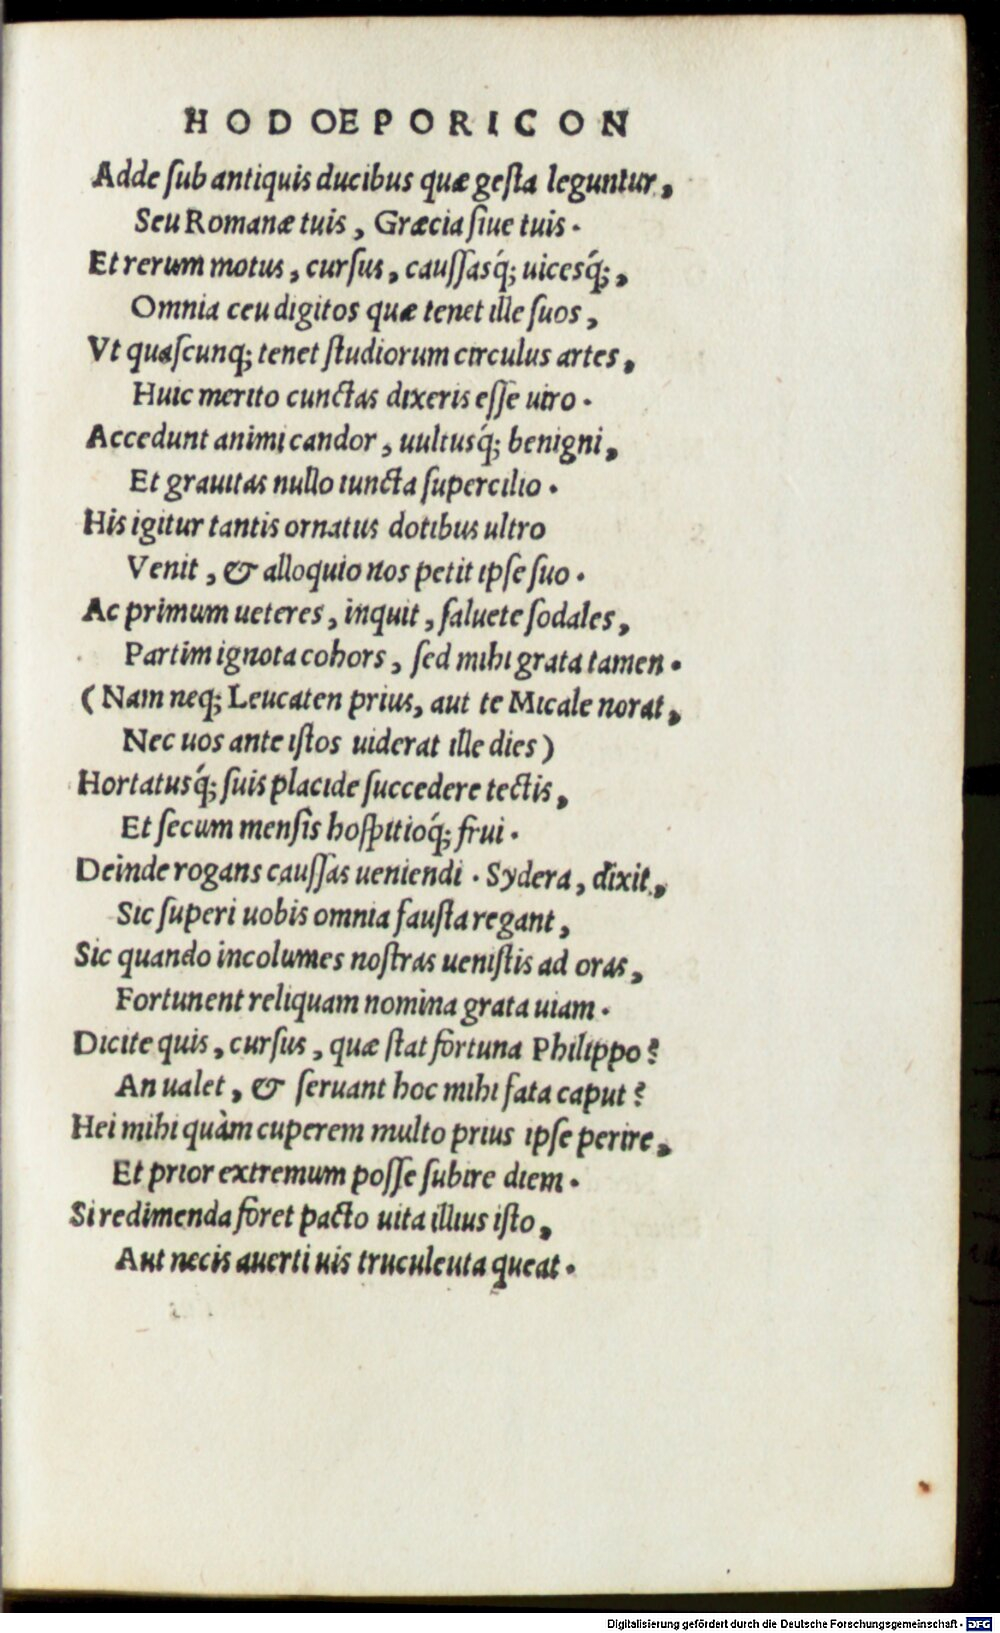 HODOEPORICON
Adde ſub antiquis ducibus quæ geſta leguntur,
Seu Romanæ tuis, Græcia ſiue tuis.
Et rerum motus, curſus, cauſſasq́; uicesq́;,
Omnia ceu digitos quæ tenet ille ſuos,
Vt quaſcunq; tenet ſtudiorum circulus artes,
Huic merito cunctas dixeris eſſe uiro.
Accedunt animi candor, uultusq́; benigni,
Et grauitas nullo iuncta ſupercilio.
His igitur tantis ornatus dotibus ultro
Venit, & alloquio nos petit ipſe ſuo.
Ac primum ueteres, inquit, ſaluete ſodales,
Partim ignota cohors, ſed mihi grata tamen.
(Nam neq; Leucaten prius, aut te Micale norat,
Nec uos ante iſtos uiderat ille dies)
Hortatusq́; ſuis placide ſuccedere tectis,
Et ſecum menſis hoſpitioq́; frui.
Deinde rogans cauſſas ueniendi. Sydera, dixit,
Sic ſuperi uobis omnia fauſta regant,
Sic quando incolumes noſtras ueniſtis ad oras,
Fortunent reliquam nomina grata uiam.
Dicite quis, curſus, quæ ſtat fortuna Philippo?
An ualet, & ſeruant hoc mihi fata caput?
Hei mihi quàm cuperem multo prius ipſe perire,
Et prior extremum poſſe ſubire diem.
Si redimenda foret pacto uita illius iſto,
Aut necis auerti uis truculeuta queat.
Digitalisierung gefördert durch die Deutsche Forschungsgemeinschaft - DFG